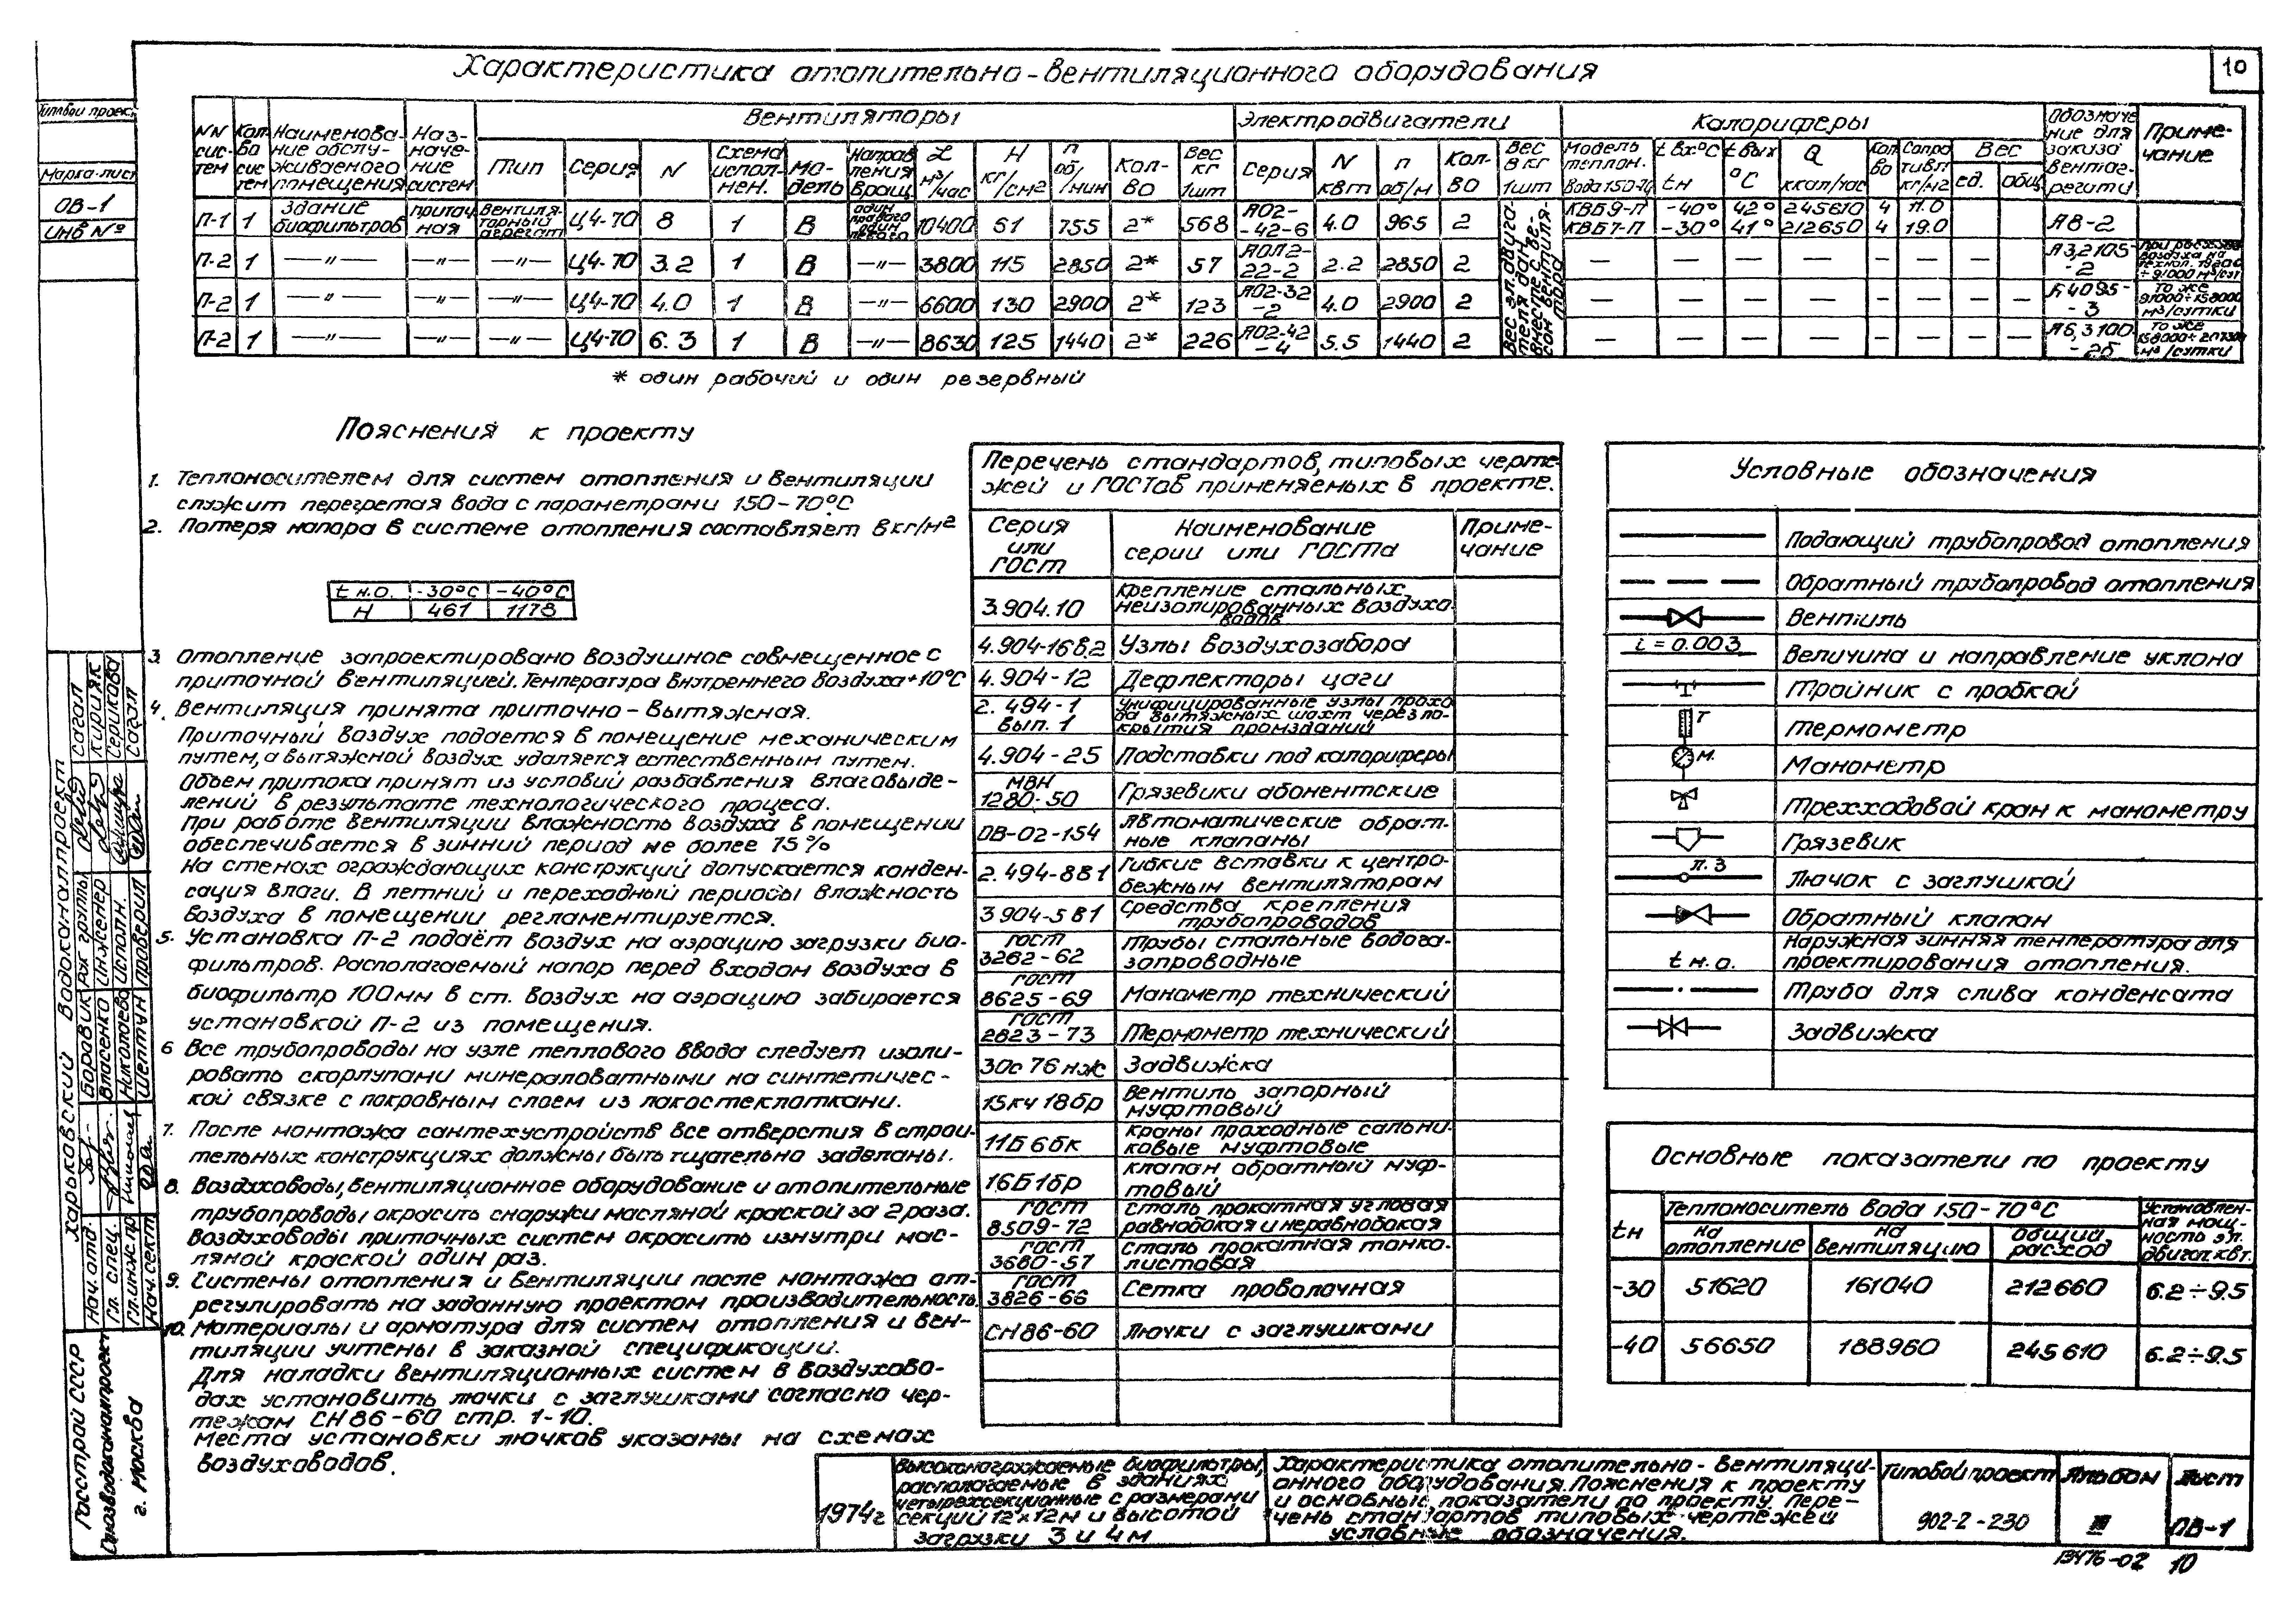 10
Характеристика отопительно-вентиляционного оборудования
Типовой проект
Марка-лист
ОВ-1
ИНВ №
NN систем | Кол-во систем | Наименование обслуживаемого помещения | Назначение систем | Вентиляторы | Электродвигатели | Калориферы | Обозначение для заказа вентагрегата | Примечание
Тип | Серия | N | Схема исполнен. | Модель | Направления вращ. | L м³/час | Н кг/см2 | п об/мин | Кол-во | Вес кг 1шт | Серия | N квт | п об/м | Кол-во | Вес в кг 1шт | Модель теплон. Вода 150-70 | t вх°С tн | t вых °С | Q ккал/час | Кол во | Сопротивл кг/м2 | Вес ед. | общ
П-1 | 1 | здание биофильтров | приточная | Вентиляторный агрегат | Ц4-70 | 8 | 1 | В | один правого один левого | 10400 | 61 | 755 | 2* | 568 | АО2-42-6 | 4.0 | 965 | 2 | Вес эл.двигателя дан вместе с весом вентилятора | КВБ9-П | -40° | 42° | 245610 | 4 | 11.0 | А8-2
КВБ7-П | -30° | 41° | 212650 | 4 | 19.0
П-2 | 1 | —"— | —"— | —"— | Ц4-70 | 3.2 | 1 | В | —"— | 3800 | 115 | 2850 | 2* | 57 | АОЛ2-22-2 | 2.2 | 2850 | 2 | — | — | — | — | — | — | — | — | А3,2105-2 | При расходе воздуха на технол. ÷ 91000 м³/сут
П-2 | 1 | —"— | —"— | —"— | Ц4-70 | 4.0 | 1 | В | —"— | 6600 | 130 | 2900 | 2* | 123 | АО2-32-2 | 4.0 | 2900 | 2 | — | — | — | — | — | — | — | — | А4095-3 | То же 91000÷158000 м³/сутки
П-2 | 1 | —"— | —"— | —"— | Ц4-70 | 6.3 | 1 | В | —"— | 8630 | 125 | 1440 | 2* | 226 | АО2-42-4 | 5.5 | 1440 | 2 | — | — | — | — | — | — | — | — | А6,3100-2б | То же м³/сутки
* один рабочий и один резервный
Пояснения к проекту
1. Теплоносителем для систем отопления и вентиляции
служит перегретая вода с параметрами 150-70°С
2. Потеря напора в системе отопления составляет в кг/м2
t н.о. | -30°С | -40°С
Н | 461 | 1178
3. Отопление запроектировано воздушное совмещенное с
приточной вентиляцией. Температура внутреннего воздуха +10°С
4. Вентиляция принята приточно-вытяжная.
Приточный воздух подается в помещение механическим
путем, а вытяжной воздух удаляется естественным путем.
Объем притока принят из условий разбавления влаговыде-
лений в результате технологического процеса.
При работе вентиляции влажность воздуха в помещении
обеспечивается в зимний период не более 75%
На стенах ограждающих конструкций допускается конден-
сация влаги. В летний и переходный периоды влажность
воздуха в помещении регламентируется.
5. Установка П-2 подаёт воздух на аэрацию загрузки био-
фильтров. Располагаемый напор перед входом воздуха в
биофильтр 100мм в ст. Воздух на аэрацию забирается
установкой П-2 из помещения.
6 Все трубопроводы на узле теплового ввода следует изоли-
ровать скорлупами минераловатными на синтетичес-
кой связке с покровным слоем из лакостеклоткани.
7. После монтажа сантехустройств все отверстия в строи-
тельных конструкциях должны быть тщательно заделаны.
8. Воздуховоды, вентиляционное оборудование и отопительные
трубопроводы окрасить снаружи масляной краской за 2 раза.
Воздуховоды приточных систем окрасить изнутри мас-
ляной краской один раз.
9. Системы отопления и вентиляции после монтажа от-
регулировать на заданную проектом производительность.
10. Материалы и арматура для систем отопления и вен-
тиляции учтены в заказной спецификации.
Для наладки вентиляционных систем в воздухово-
дах установить лючки с заглушками согласно чер-
тежам СН86-60 стр. 1-10.
Места установки лючков указаны на схемах
воздуховодов.
Перечень стандартов, типовых черте-
жей и ГОСТов применяемых в проекте.
Серия или ГОСТ | Наименование серии или ГОСТа | Примечание
3.904.10 | Крепление стальных неизолированных воздуховодов
4.904-16в.2 | Узлы воздухозабора
4.904-12 | Дефлекторы цаги
2.494-1 вып. 1 | Унифицированные узлы прохода вытяжных шахт через покрытия промзданий
4.904-25 | Подставки под калориферы
МВН 1280-50 | Грязевики абонентские
ОВ-02-154 | Автоматические обратные клапаны
2.494-8в1 | Гибкие вставки к центробежным вентиляторам
3.904-5в1 | Средства крепления трубопроводов
ГОСТ 3262-62 | Трубы стальные водогазопроводные
ГОСТ 8625-69 | Манометр технический
ГОСТ 2823-73 | Термометр технический
30с 76 нж | Задвижка
15кч 18бр | Вентиль запорный муфтовый
11Б 6бк | Краны проходные сальниковые муфтовые
16Б1бр | Клапан обратный муфтовый
ГОСТ 8509-72 | Сталь прокатная угловая равнобокая и неравнобокая
ГОСТ 3680-57 | Сталь прокатная тонколистовая
ГОСТ 3826-66 | Сетка проволочная
СН86-60 | Лючки с заглушками
Условные обозначения
Подающий трубопровод отопления
Обратный трубопровод отопления
Вентиль
i = 0.003 | Величина и направление уклона
Тройник с пробкой
Т | Термометр
М. | Манометр
Трехходовой кран к манометру
Грязевик
Л.3 | Лючок с заглушкой
Обратный клапан
t н.о. | Наружная зимняя температура для проектирования отопления.
Труба для слива конденсата
Задвижка
Основные показатели по проекту
tн | Теплоноситель вода 150-70°С | Установленная мощность эл. двигат. квт.
на отопление | на вентиляцию | общий расход
-30 | 51620 | 161040 | 212660 | 6.2÷9.5
-40 | 56650 | 188960 | 245610 | 6.2÷9.5
Харьковский Водоканалпроект
Нач. отд. | Боровик | Рук группы | Сагал
Гл. спец. | Власенко | Инженер | Кирияк
Гл.инж.пр. | Николаева | Исполн. | Серикова
Нач.сект. | Шептун | Проверил | Сагал
Госстрой СССР
Союзводоканалпроект
г. Москва
1974г
Высоконагружаемые биофильтры,
располагаемые в зданиях
четырехсекционные с размерами
секций 12×12м и высотой
загрузки 3 и 4м
Характеристика отопительно-вентиляци-
онного оборудования. Пояснения к проекту
и основные показатели по проекту. Пере-
чень стандартов типовых чертежей
условные обозначения.
Типовой проект
902-2-230
Альбом
III
Лист
ОВ-1
13476-02 10